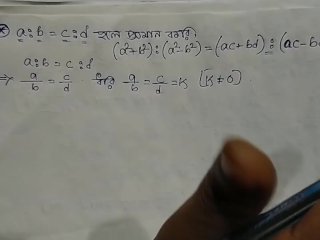 * a : b = c : d হলে প্রমাণ করো:
(a²+b²) : (a²-b²) = (ac+bd) : (ac-b
a : b = c : d
⇒ a/b = c/d ধরি a/b = c/d = K [K ≠ 0].